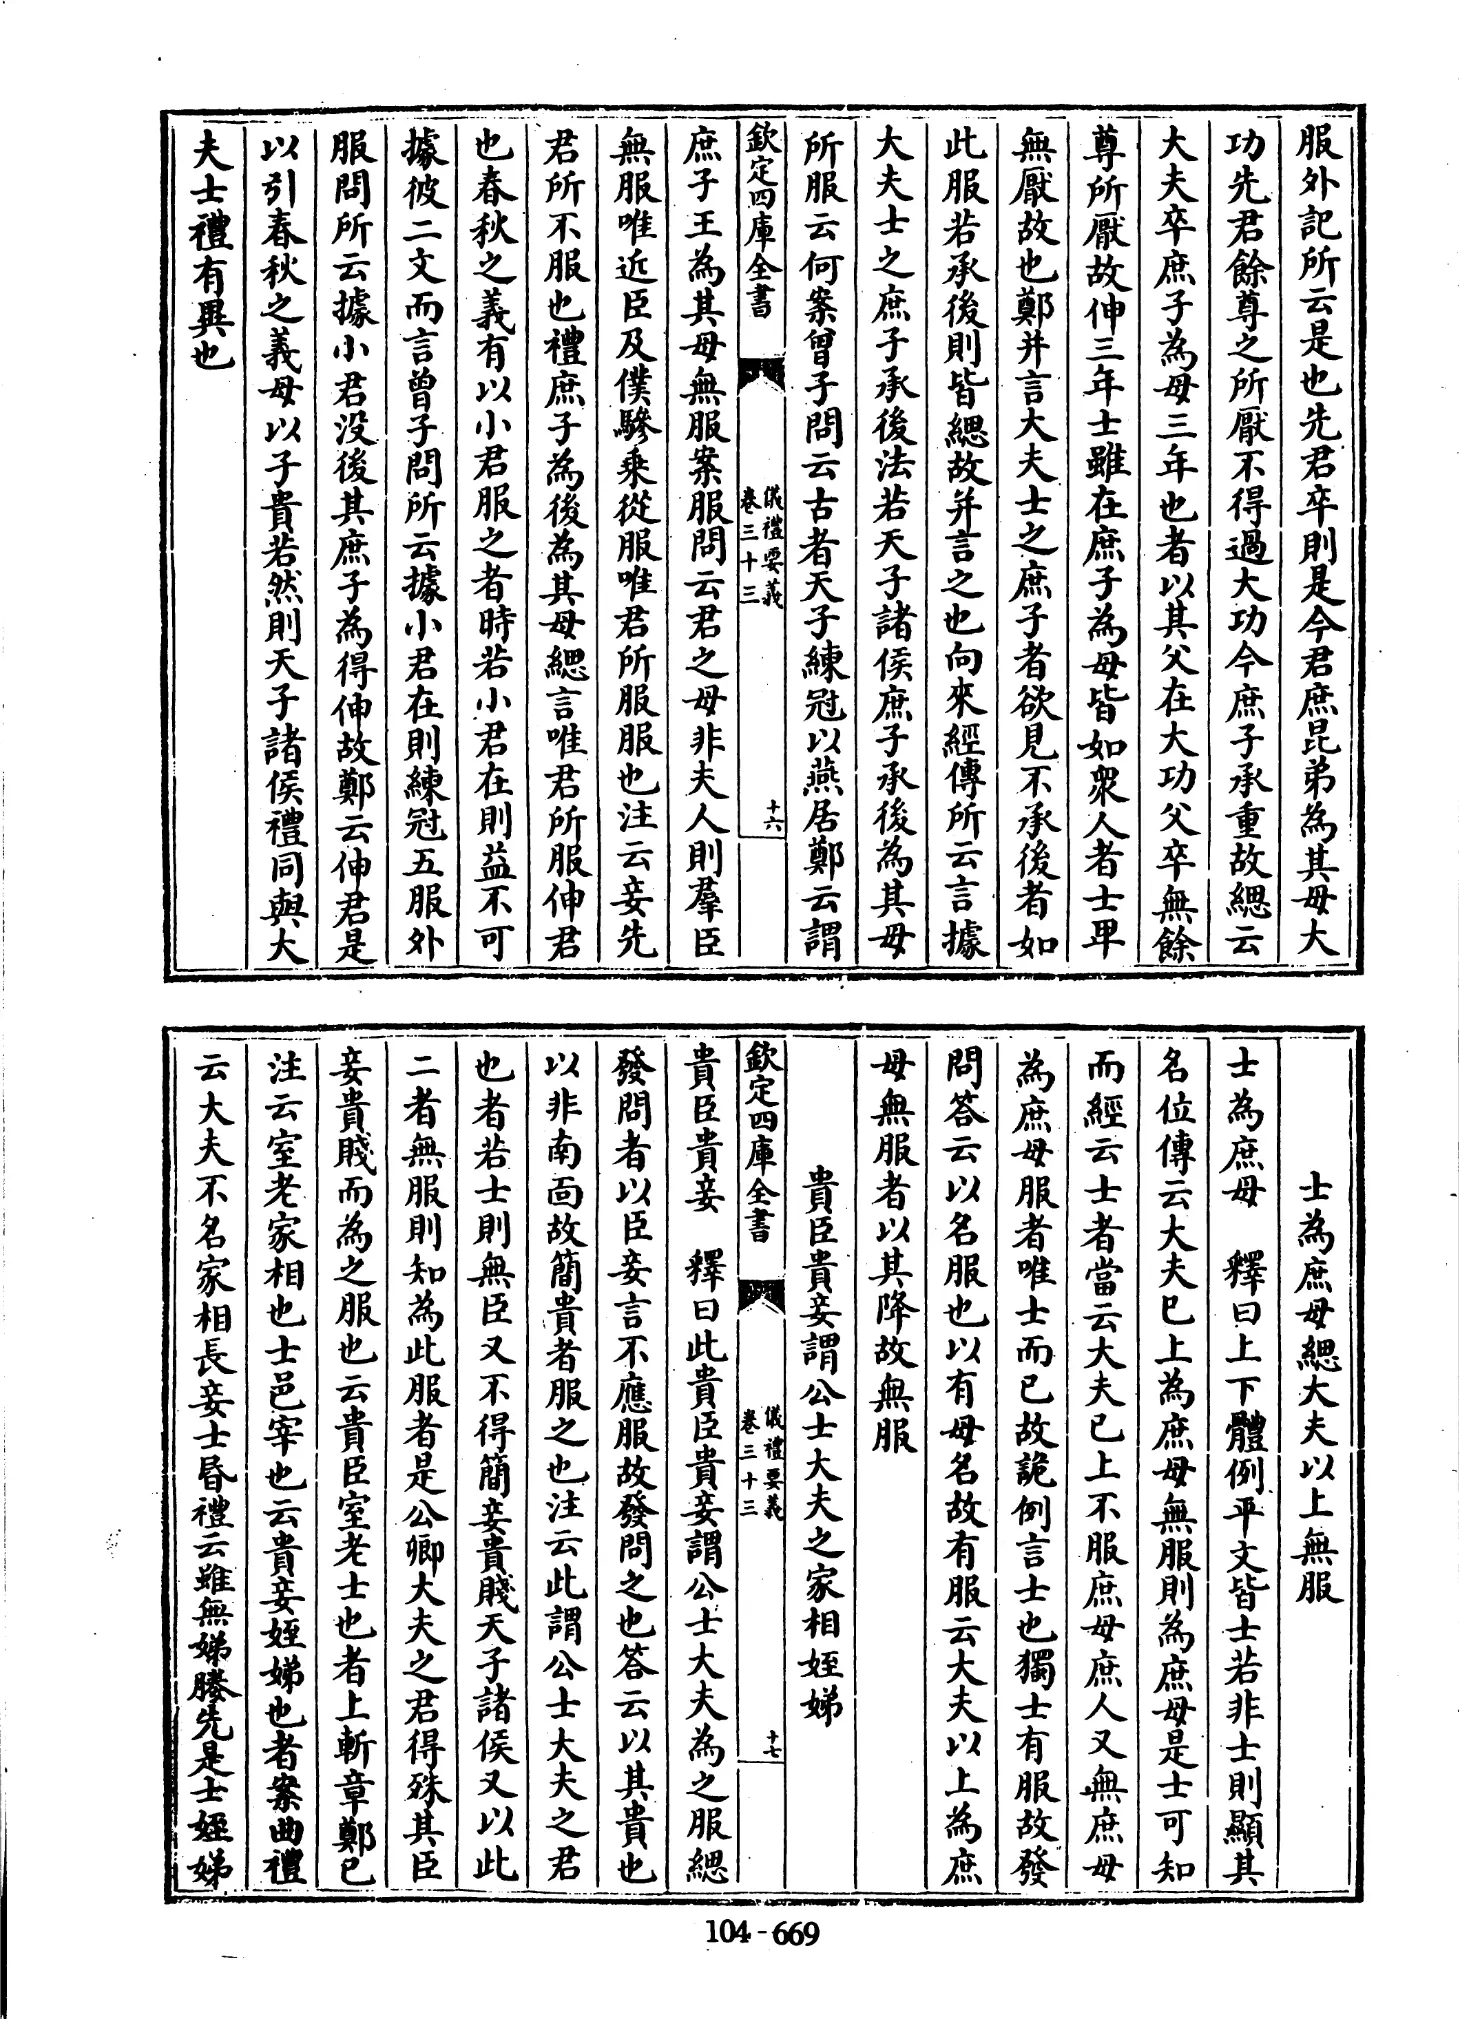 服外記所云是也先君卒則是今君庶昆弟為其母大
功先君餘尊之所厭不得過大功今庶子承重故緦云
大夫卒庶子為母三年也者以其父在大功父卒無餘
尊所厭故伸三年士雖在庶子為母皆如衆人者士卑
無厭故也鄭并言大夫士之庶子者欲見不承後者如
此服若承後則皆緦故并言之也向來經傳所云言據
大夫士之庶子承後法若天子諸侯庶子承後為其母
所服云何案曾子問云古者天子練冠以燕居鄭云謂
欽定四庫全書
儀禮要義
卷三十三
十六
庶子王為其母無服案服問云君之母非夫人則羣臣
無服唯近臣及僕驂乘從服唯君所服服也注云妾先
君所不服也禮庶子為後為其母緦言唯君所服伸君
也春秋之義有以小君服之者時若小君在則益不可
據彼二文而言曾子問所云據小君在則練冠五服外
服問所云據小君没後其庶子為得伸故鄭云伸君是
以引春秋之義母以子貴若然則天子諸侯禮同與大
夫士禮有異也
士為庶母緦大夫以上無服
士為庶母　釋曰上下體例平文皆士若非士則顯其
名位傳云大夫已上為庶母無服則為庶母是士可知
而經云士者當云大夫已上不服庶母庶人又無庶母
為庶母服者唯士而已故詭例言士也獨士有服故發
問答云以名服也以有母名故有服云大夫以上為庶
母無服者以其降故無服
貴臣貴妾謂公士大夫之家相姪娣
欽定四庫全書
儀禮要義
卷三十三
十七
貴臣貴妾　釋曰此貴臣貴妾謂公士大夫為之服緦
發問者以臣妾言不應服故發問之也答云以其貴也
以非南面故簡貴者服之也注云此謂公士大夫之君
也者若士則無臣又不得簡妾貴賤天子諸侯又以此
二者無服則知為此服者是公卿大夫之君得殊其臣
妾貴賤而為之服也云貴臣室老士也者上斬章鄭已
注云室老家相也士邑宰也云貴妾姪娣也者案曲禮
云大夫不名家相長妾士昏禮云雖無娣媵先是士姪娣
104-669